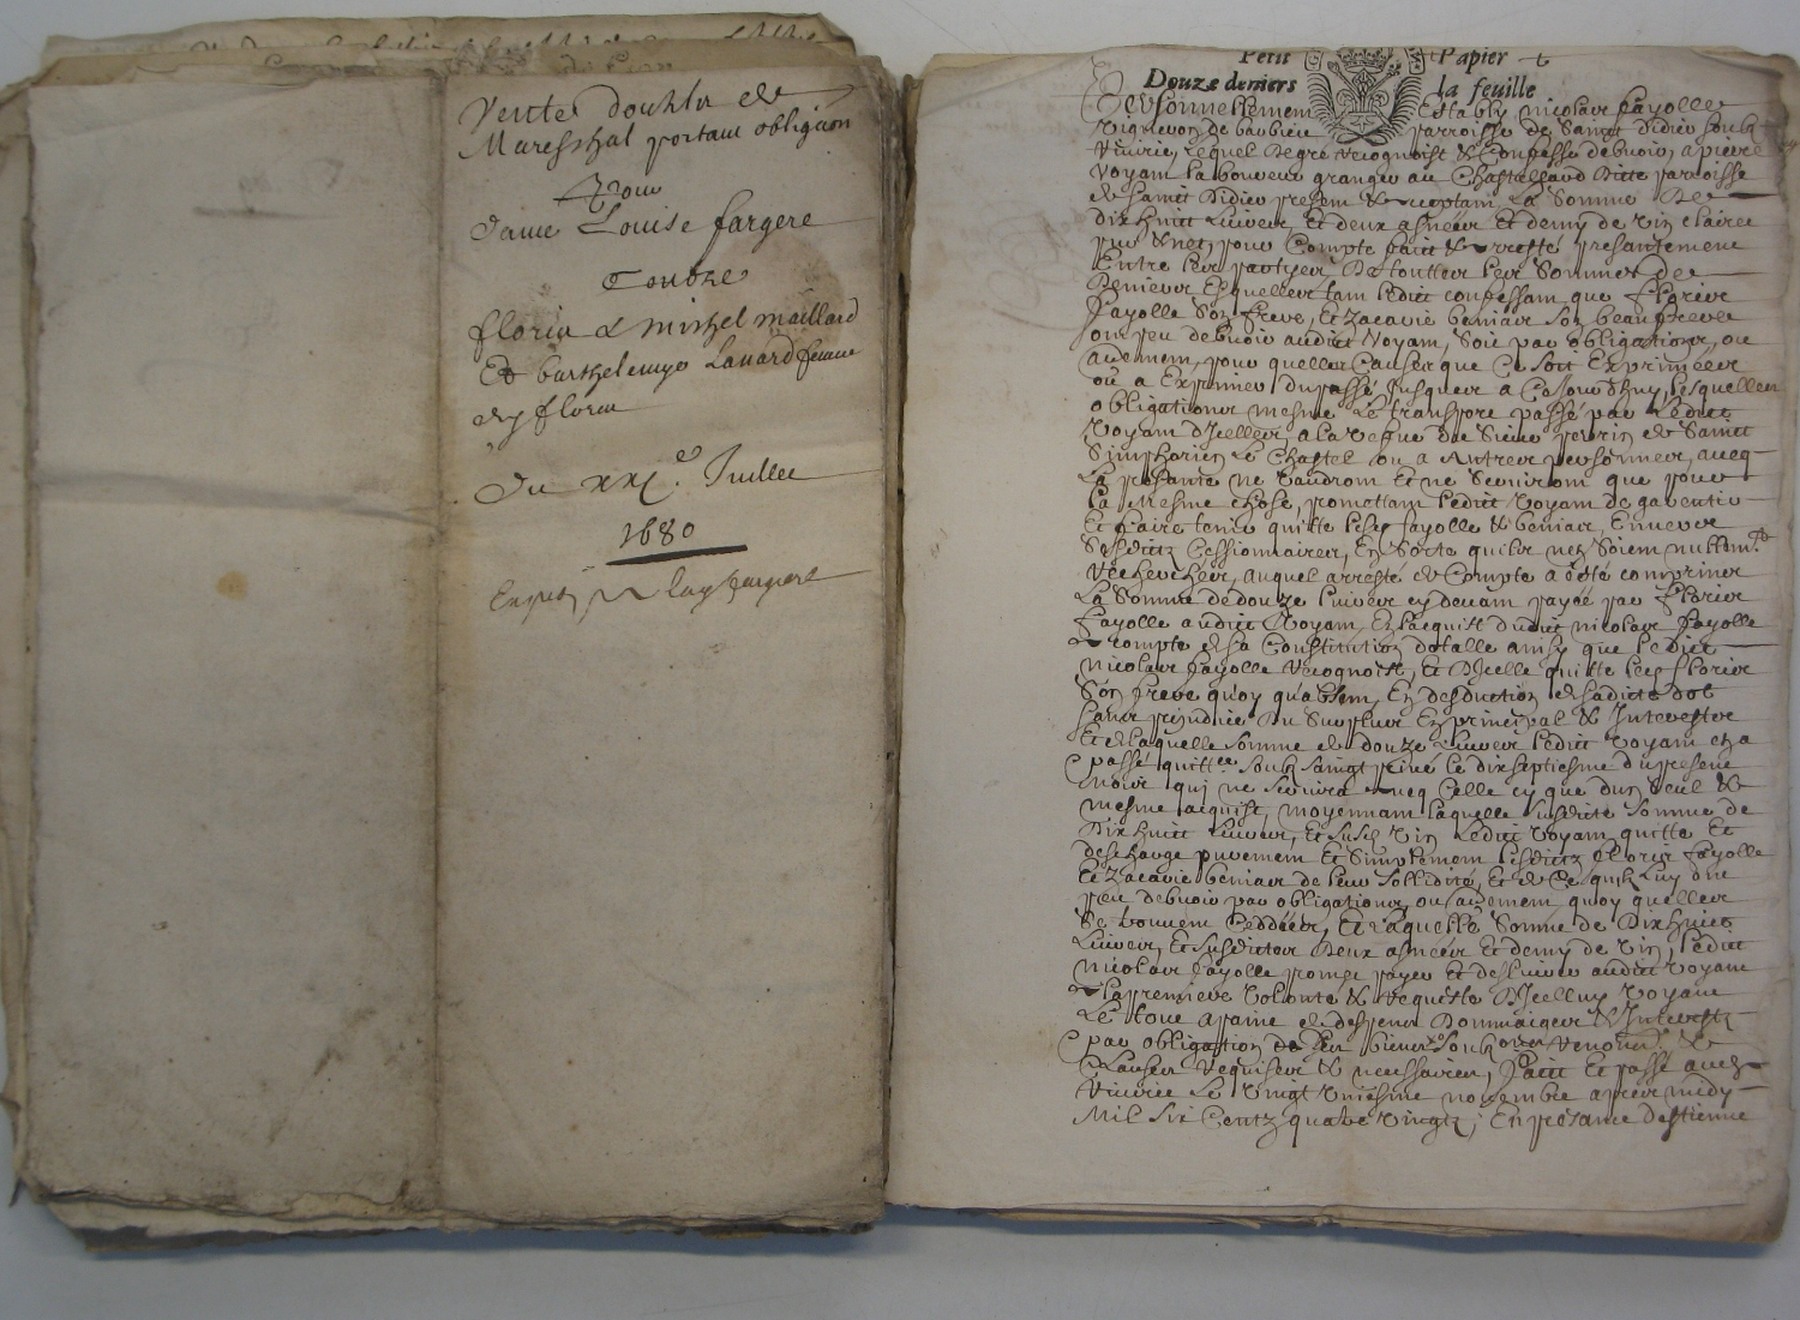 Vente double de
Mareschal portant obligaon
Pour
dame Louise fargere
Contre
florin & michel maillard
Et barthelemye Lanard femme
du xxi.e Juillet
1680
Petit Papier
Douze deniers la feuille
Personnellement Estably nicolas fayolle
vigneron de parroisse de Sainct Didier soubz
Riuirie, Lequel de gre recognoist & Confesse debuoir, a pierre
Voyam laboureur granger au parroisse
de Sainct Didier present & acceptant, La Somme De
dix huict Liures, Et deux asnées Et demy de vin clairet
pur & net, pour Compte faict & arresté presantement
Entre les partyes, De touttes les Sommes de
Deniers Esquelles tant ledict confessant, que floris
fayolle Son frere, Et Zacarie beniere Son beaufrere
ont peu debuoir audict Voyam, Soit par obligations, ou
autrement, pour quelles Causes que Ce soit Exprimées
ou a Exprimer du passé Jusques a Ce Jourdhuy, lesquelles
obligations mesme Le transport passé par Ledict
Voyam dIcelles, a la vefue de Sieur perrin de Sainct
Simphorien Le Chastel ou a Autres personnes, aueq
La presante ne vaudront Et ne Seruiront que pour
la mesme chose, promettant ledict Voyam de garentir
Et faire tenir quitte lesd. fayolle & beniere, Enuers
Sesdictz Cessionnaires, En Sorte quilz nen Soient nullem.t
recherchés, auquel arresté de Compte a esté comprins
La Somme de douze liures cy deuant payée par floris
fayolle audict Voyam, En lacquit dudict nicolas fayolle
a compte de sa Constitution dotalle ainsy que ledict
nicolas fayolle recognoist, Et dIcelle quitte led. floris
Son frere quoy quabsent, En desduction de sadicte dot
sans prejudice Du Surplus En principal & Interestz
Et de laquelle somme de douze Liures ledict Voyam en a
passé quitt.ce soubz saingt priué le dix septiesme du present
mois qui ne Seruira aueq Celle cy que dun Seul &
mesme acquist, moyennant laquelle susdicte Somme de
Dix huict Liures, Et susd. Vin Ledict Voyam quitte Et
descharge purement Et Simplement lesdictz floris fayolle
Et Zacarie beniere de leur Sollidité, Et de Ce quilz Luy ont
peu debuoir par obligations, ou autrement, quoy quelles
Se trouuent Ceddées, Et laquelle Somme de Dix huict
Liures, Et susdictes Deux asnées Et demy de Vin, ledict
nicolas fayolle promet payer Et desliurer audict Voyam
a la premiere Volonté & requeste dIcelluy Voyam
Le tout a paine de despens Dommaiges & Interestz
par obligation de ses biens Soubz
Clauses requises & necessaires, faict Et passé audict
Riuirie Le Vingt Uniesme nouembre apres midy
Mil Six Centz quatre Vingtz, En presance dEstienne